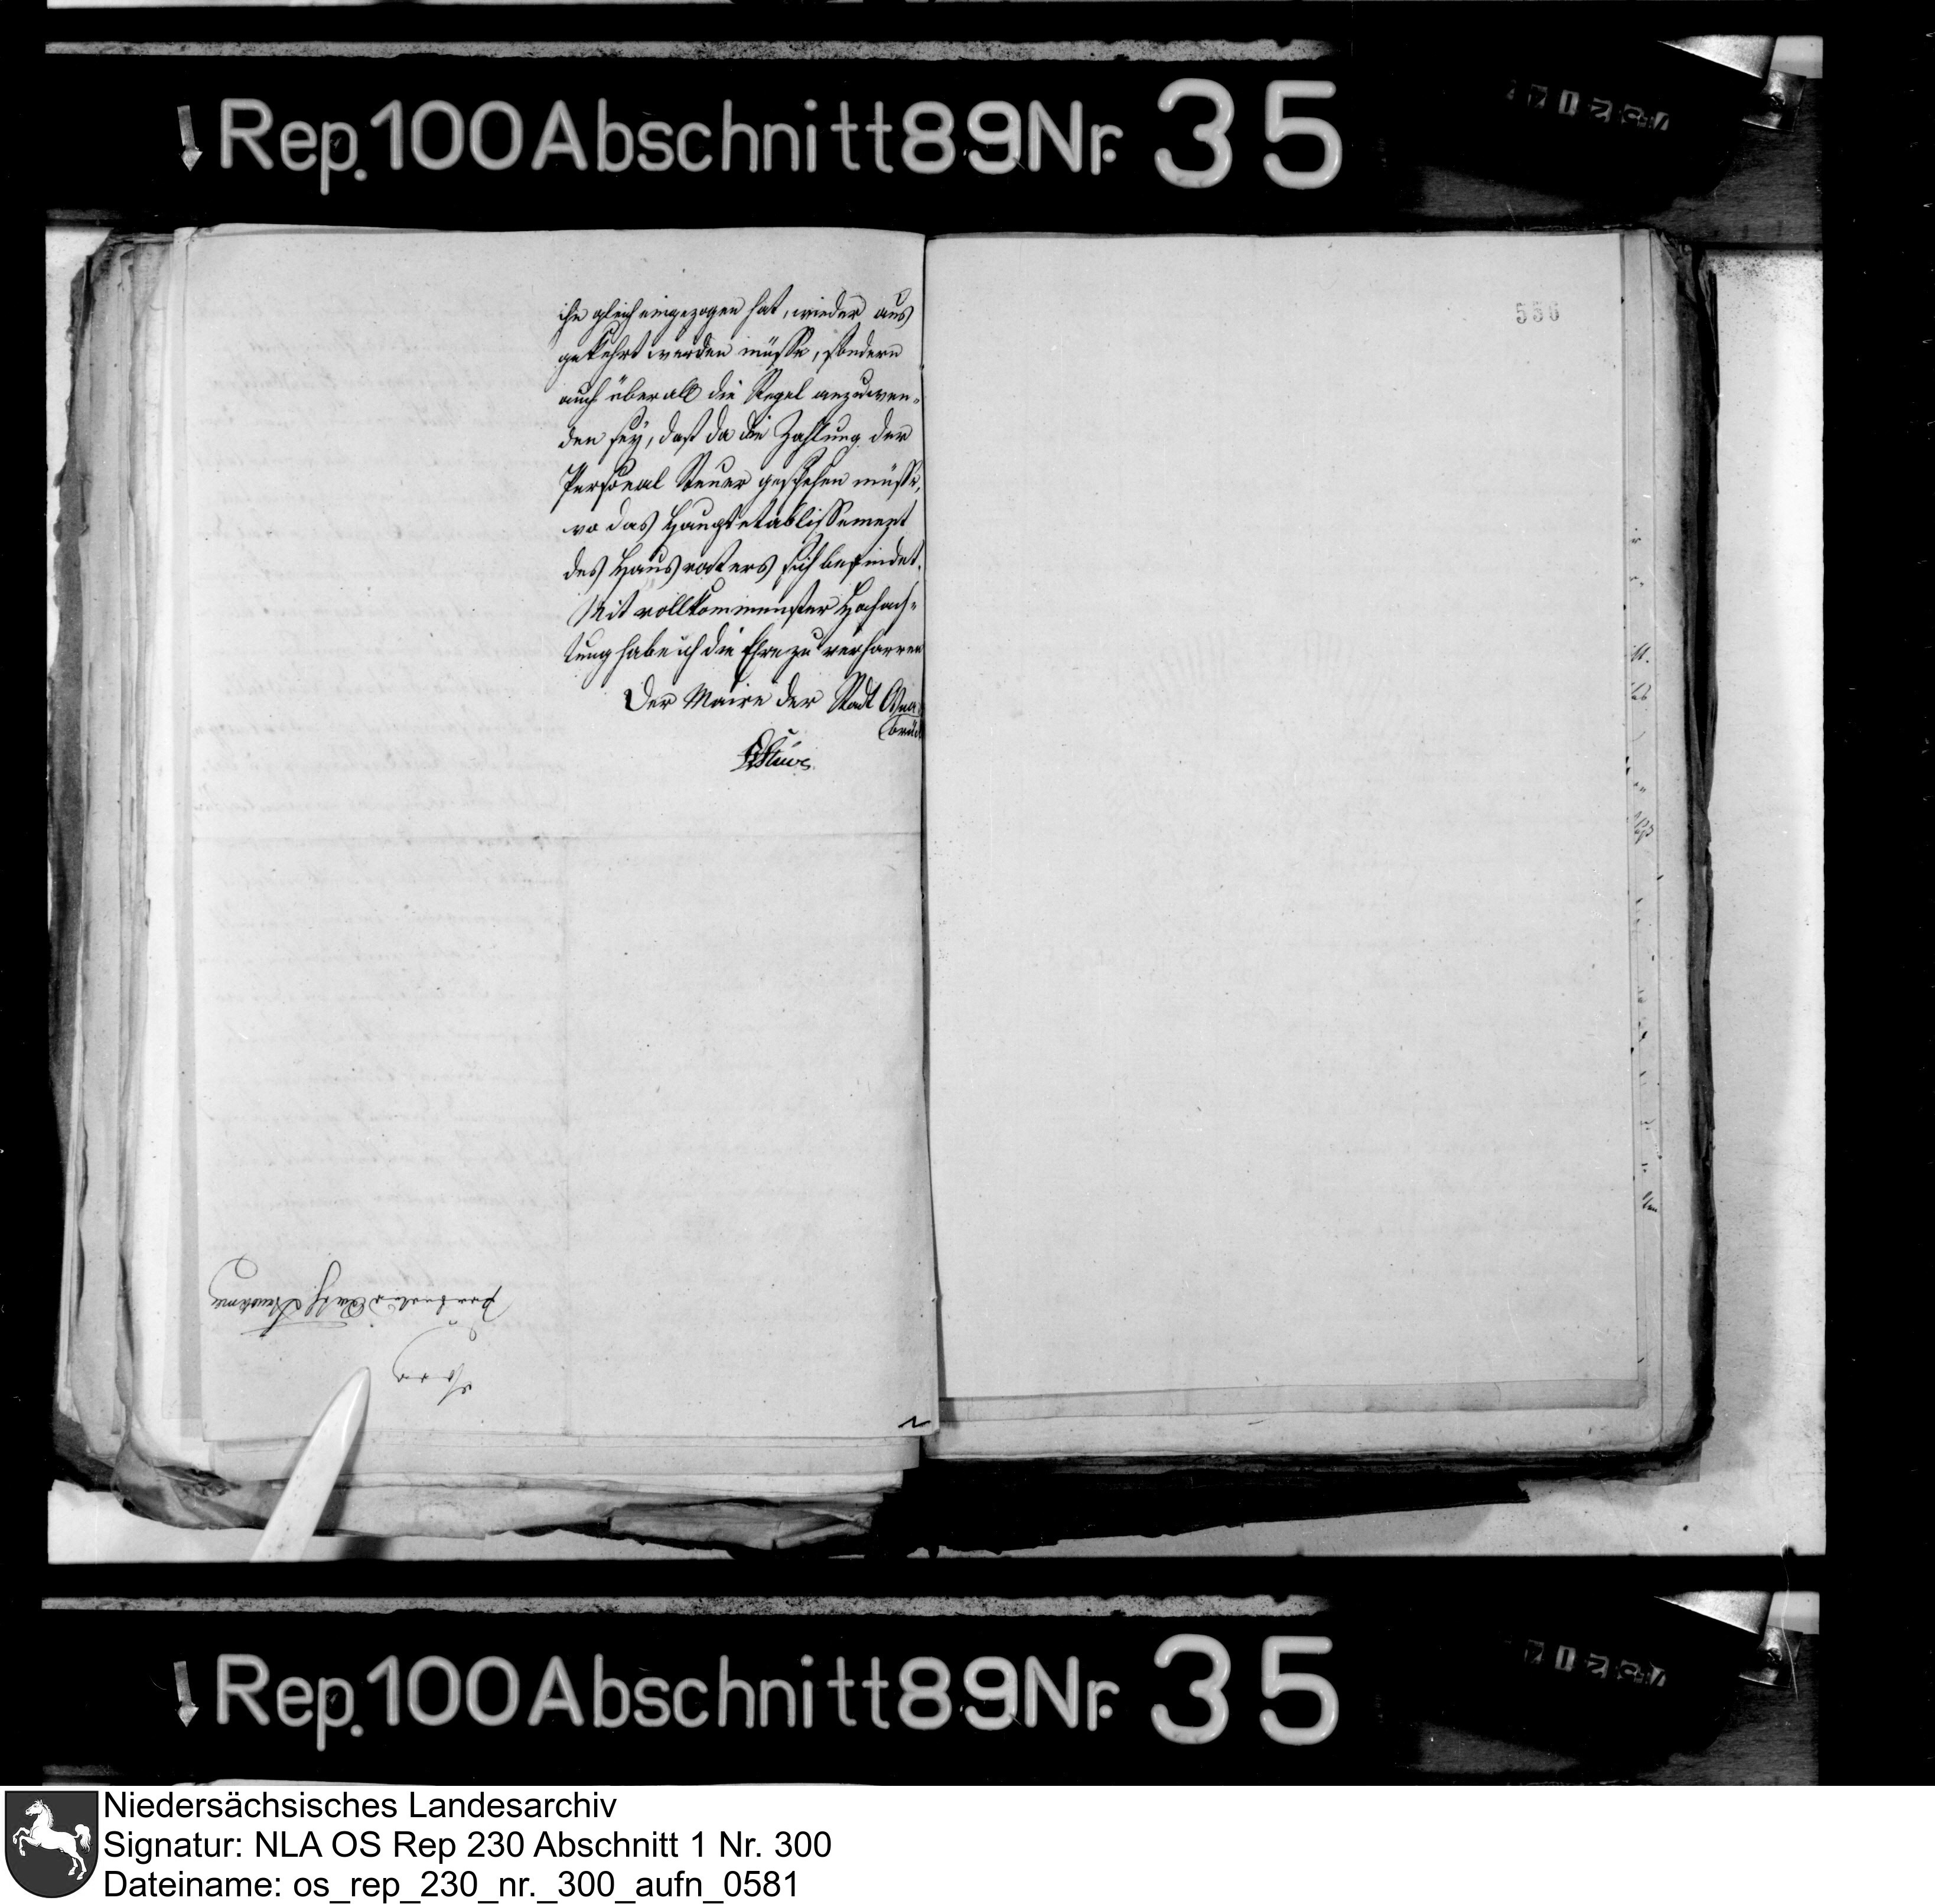 Rep. 100 Abschnitt 89 Nr. 35
ihn gleich eingezogen hat, wieder aus
gekehrt werden müsse, sondern
auch überall die Regel anzuwen-
den sey, daß da die Zahlung der
Personal Steuer geschehen müsse,
wo das Hauptetablissement
des Hausvaters sich befindet.
Mit vollkommenster Hochach-
tung habe ich die Ehre zu verharren
Der Maire der Stadt Osna
brück
Stüve
550
Rep. 100 Abschnitt 89 Nr. 35
Niedersächsisches Landesarchiv
Signatur: NLA OS Rep 230 Abschnitt 1 Nr. 300
Dateiname: os_rep_230_nr._300_aufn_0581